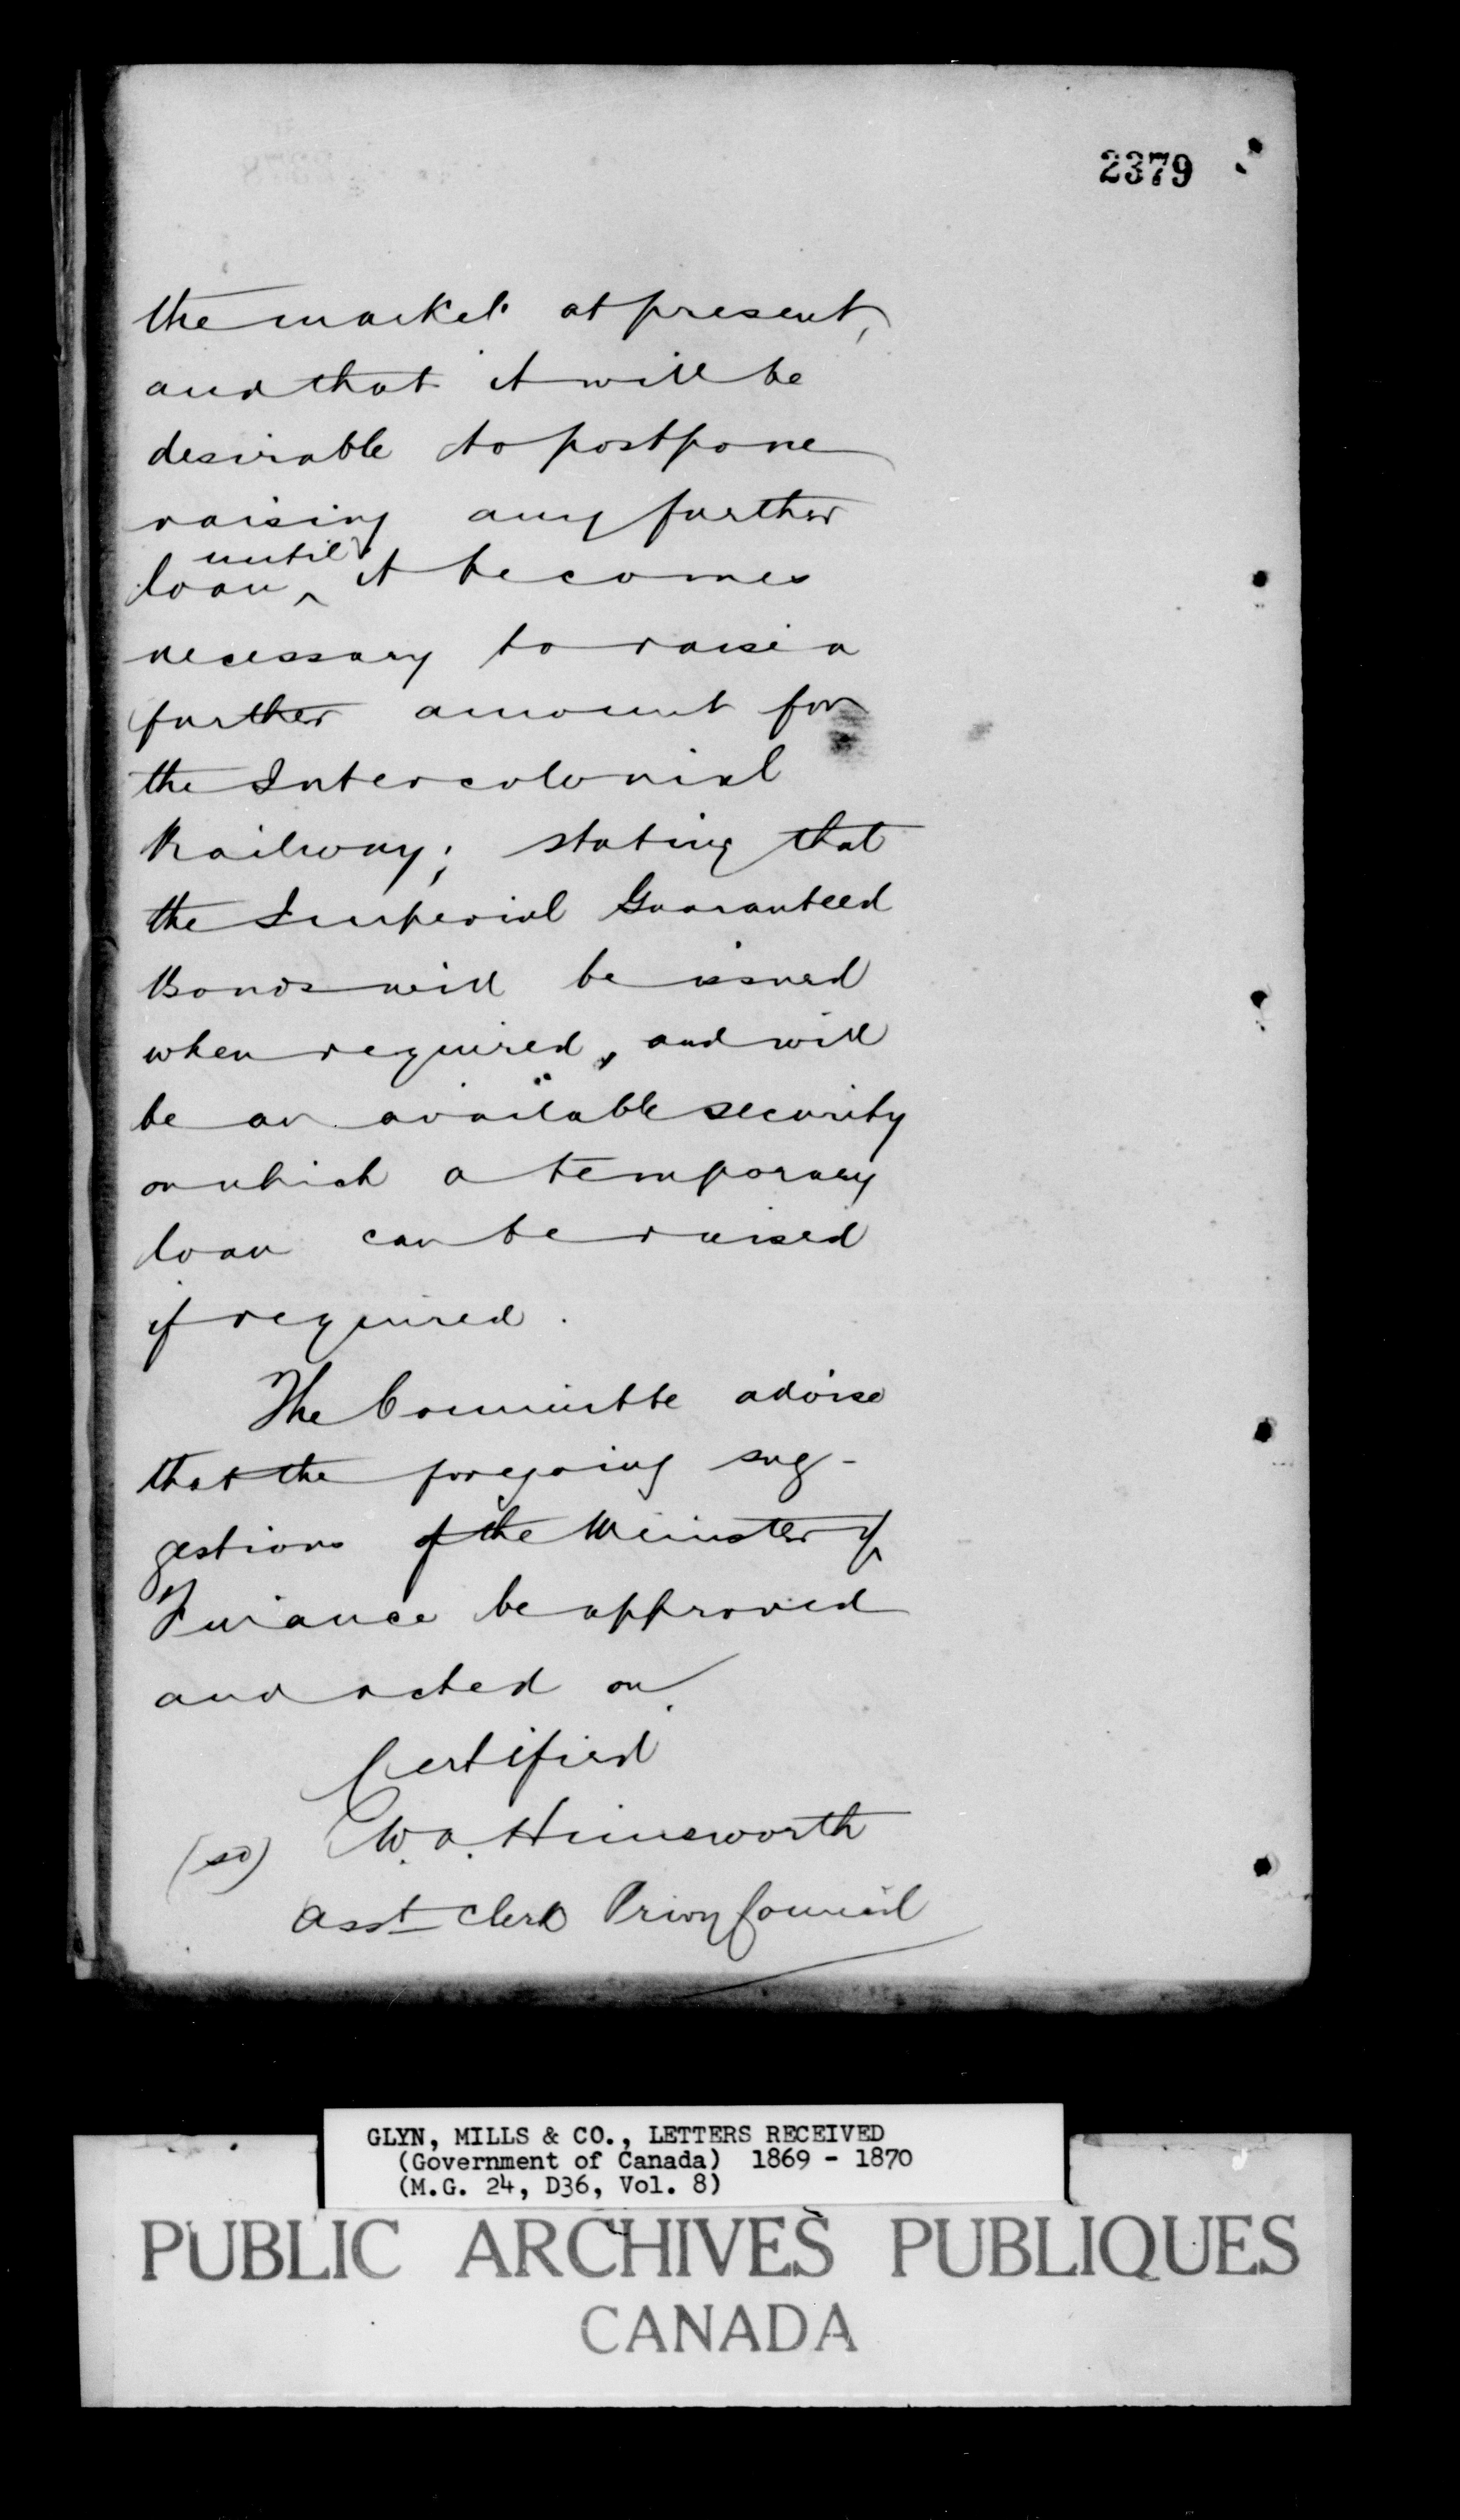 2379
the market at present,
and that it will be
desirable to postpone
raising any further
loan ^ until it becomes
necessary to raise a
further amount for
the Intercolonial
Railway; stating that
the Imperial Guaranteed
Bonds will be issued
when required, and will
be an available security
on which a temporary
loan can be raised
if required.
The Committe advise
that the foregoing sug-
gestions of the Minister of
Finance be approved
and acted on.
Certified
(sd) W. A. Himsworth
Asst Clerk Privy Council
GLYN, MILLS & CO., LETTERS RECEIVED
(Government of Canada) 1869 - 1870
(M.G. 24, D36, Vol. 8)
PUBLIC ARCHIVES PUBLIQUES
CANADA